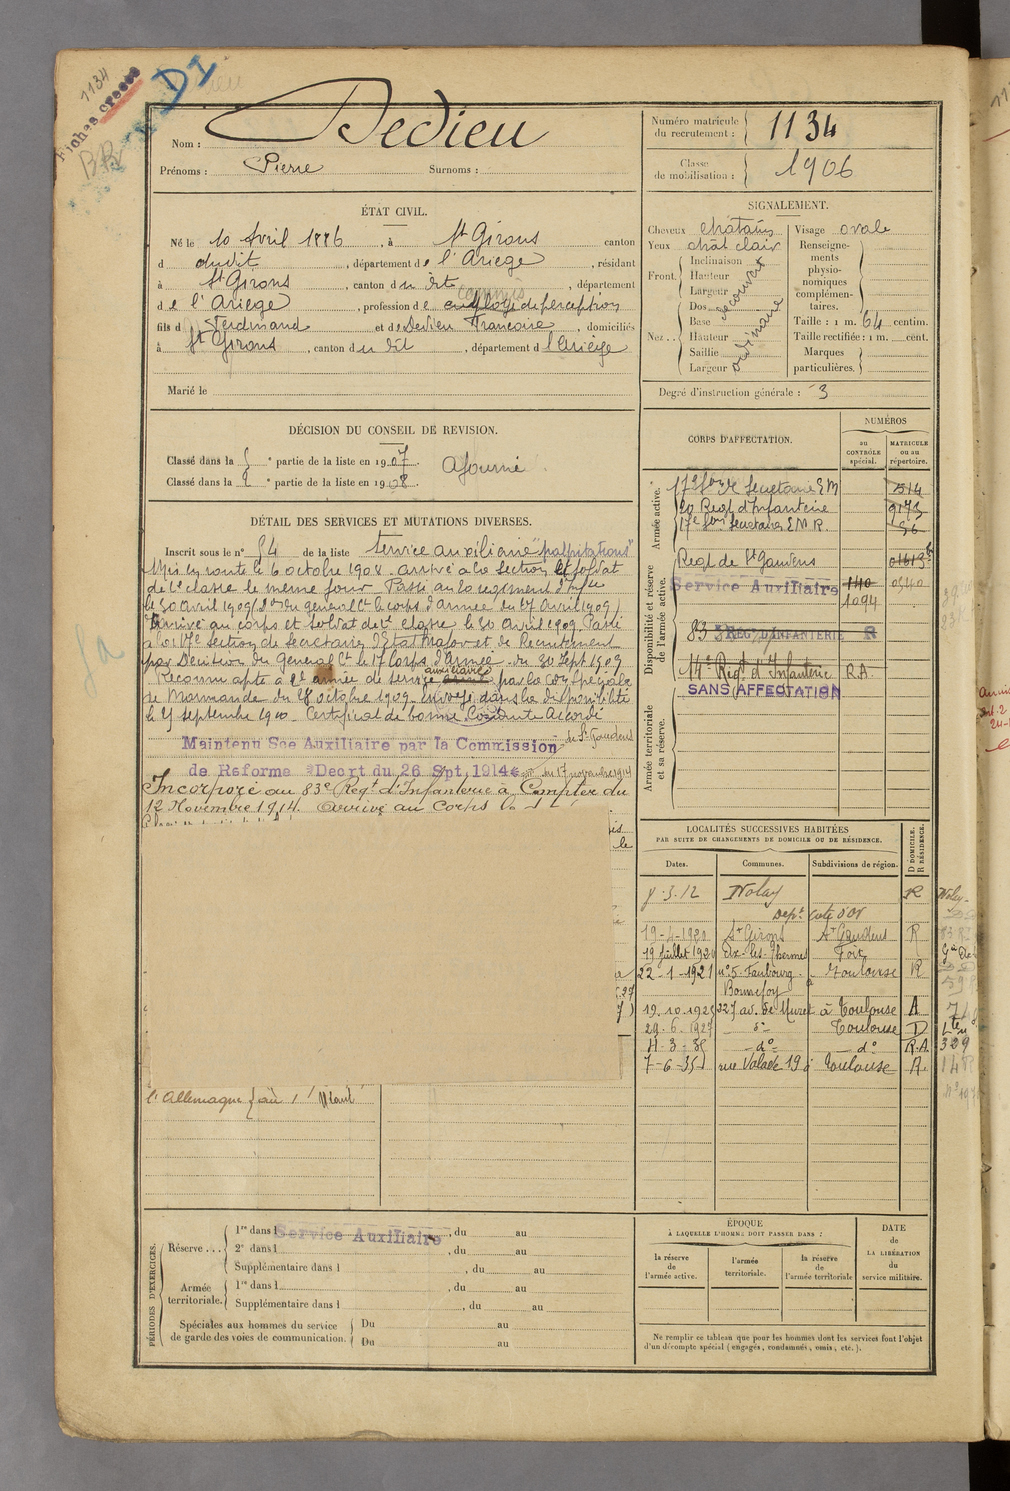 1134
Fiches
DI
Nom : Dedieu
Prénoms : Pierre Surnoms :
Numéro matricule du recrutement : 1134
Classe de mobilisation : 1906
ÉTAT CIVIL.
Né le 10 Avril 1886, à St Girons canton
d dudit, département de l'Ariège, résidant
à St Girons, canton du dit, département
commis
de l'Ariège, profession de employé de perception
fils de Ferdinand et de Dedieu Françoise, domiciliés
à St Girons, canton du dit, département d l'Ariège
Marié le
SIGNALEMENT.
Cheveux chatains
Yeux chât clair
Front. Inclinaison
Hauteur
Largeur
découvert
Nez.. Dos
Base
Hauteur
Saillie
Largeur
ordinaire
Visage ovale
Renseignements physionomiques complémentaires.
Taille : 1 m. 64 centim.
Taille rectifiée : 1 m. cent.
Marques particulières.
Degré d'instruction générale : 3
DÉCISION DU CONSEIL DE REVISION.
Classé dans la 5 e partie de la liste en 1907.
Classé dans la 2 e partie de la liste en 1908.
Ajourné
DÉTAIL DES SERVICES ET MUTATIONS DIVERSES.
Inscrit sous le n° 54 de la liste Service auxiliaire "palpitations"
Mis en route le 6 octobre 1908. arrivé à la Section et soldat
de 2e classe le même jour. Passé au 20 regiment d'Infie
le 30 avril 1909 (Don du général Ct le corps d'armée du 27 avril 1909)
Arrivé au corps et soldat de 2e classe le 30 avril 1909. Passé
à la 17e Section de Secrétaires d'Etat Major et de Recrutement
par Décision du Général Ct le 17 Corps d'Armée du 30 Sept 1909
Reconnu apte à 2e année de service auxiliaire par la Con Spéciale
de Marmande du 28 octobre 1909. Envoyé dans la disponibilité
le 25 septembre 1910. Certificat de bonne Conduite Accordé
Maintenu Sce Auxiliaire par la Commission de St Gaudens
de Reforme Decrt du 26 Spt. 1914 du 17 novembre 1914
Incorporé au 83e Regt d'Infanterie à Compter du
12 Novembre 1914. Arrivé au Corps
l'Allemagne
CORPS D'AFFECTATION.
NUMÉROS
au CONTRÔLE spécial.
MATRICULE ou au répertoire.
Armée active.
17e Son de Secrétaires E M 514
20 Regt d'Infanterie 9173
17e Son Secrétaires E.M.R. 56
Disponibilité et réserve de l'armée active.
Regt de St Gaudens
Service Auxiliaire 140 0540
1094
83 REGt D'INFANTERIE R
Armée territoriale et sa réserve.
14e Regt d'Infanterie R.A.
SANS AFFECTATION
LOCALITÉS SUCCESSIVES HABITÉES
PAR SUITE DE CHANGEMENTS DE DOMICILE OU DE RÉSIDENCE.
Dates. Communes. Subdivisions de région. D DOMICILE. R RÉSIDENCE.
8.3.12 Nolay R
Dept Cote d'Or
19-4-1920 St Girons St Gaudens R
19 Juillet 1920 Ax-les-Thermes Foix
22-1-1921 n° 5 Faubourg Bonnefoy à Toulouse R
19.10.1925 227 av. de Muret à Toulouse A
29.6.1927 do Toulouse D
11-3-35 do do R.A.
7-6-35 rue Valade 19 à Toulouse A.
PÉRIODES D'EXERCICES.
Réserve... 1re dans l Service Auxiliaire, du au
2e dans l, du au
Supplémentaire dans l, du au
Armée territoriale. 1re dans l, du au
Supplémentaire dans l, du au
Spéciales aux hommes du service de garde des voies de communication. Du au
Du au
ÉPOQUE
À LAQUELLE L'HOMME DOIT PASSER DANS :
la réserve de l'armée active.
l'armée territoriale.
la réserve de l'armée territoriale
DATE de LA LIBÉRATION du service militaire.
Ne remplir ce tableau que pour les hommes dont les services font l'objet
d'un décompte spécial (engagés, condamnés, omis, etc.).